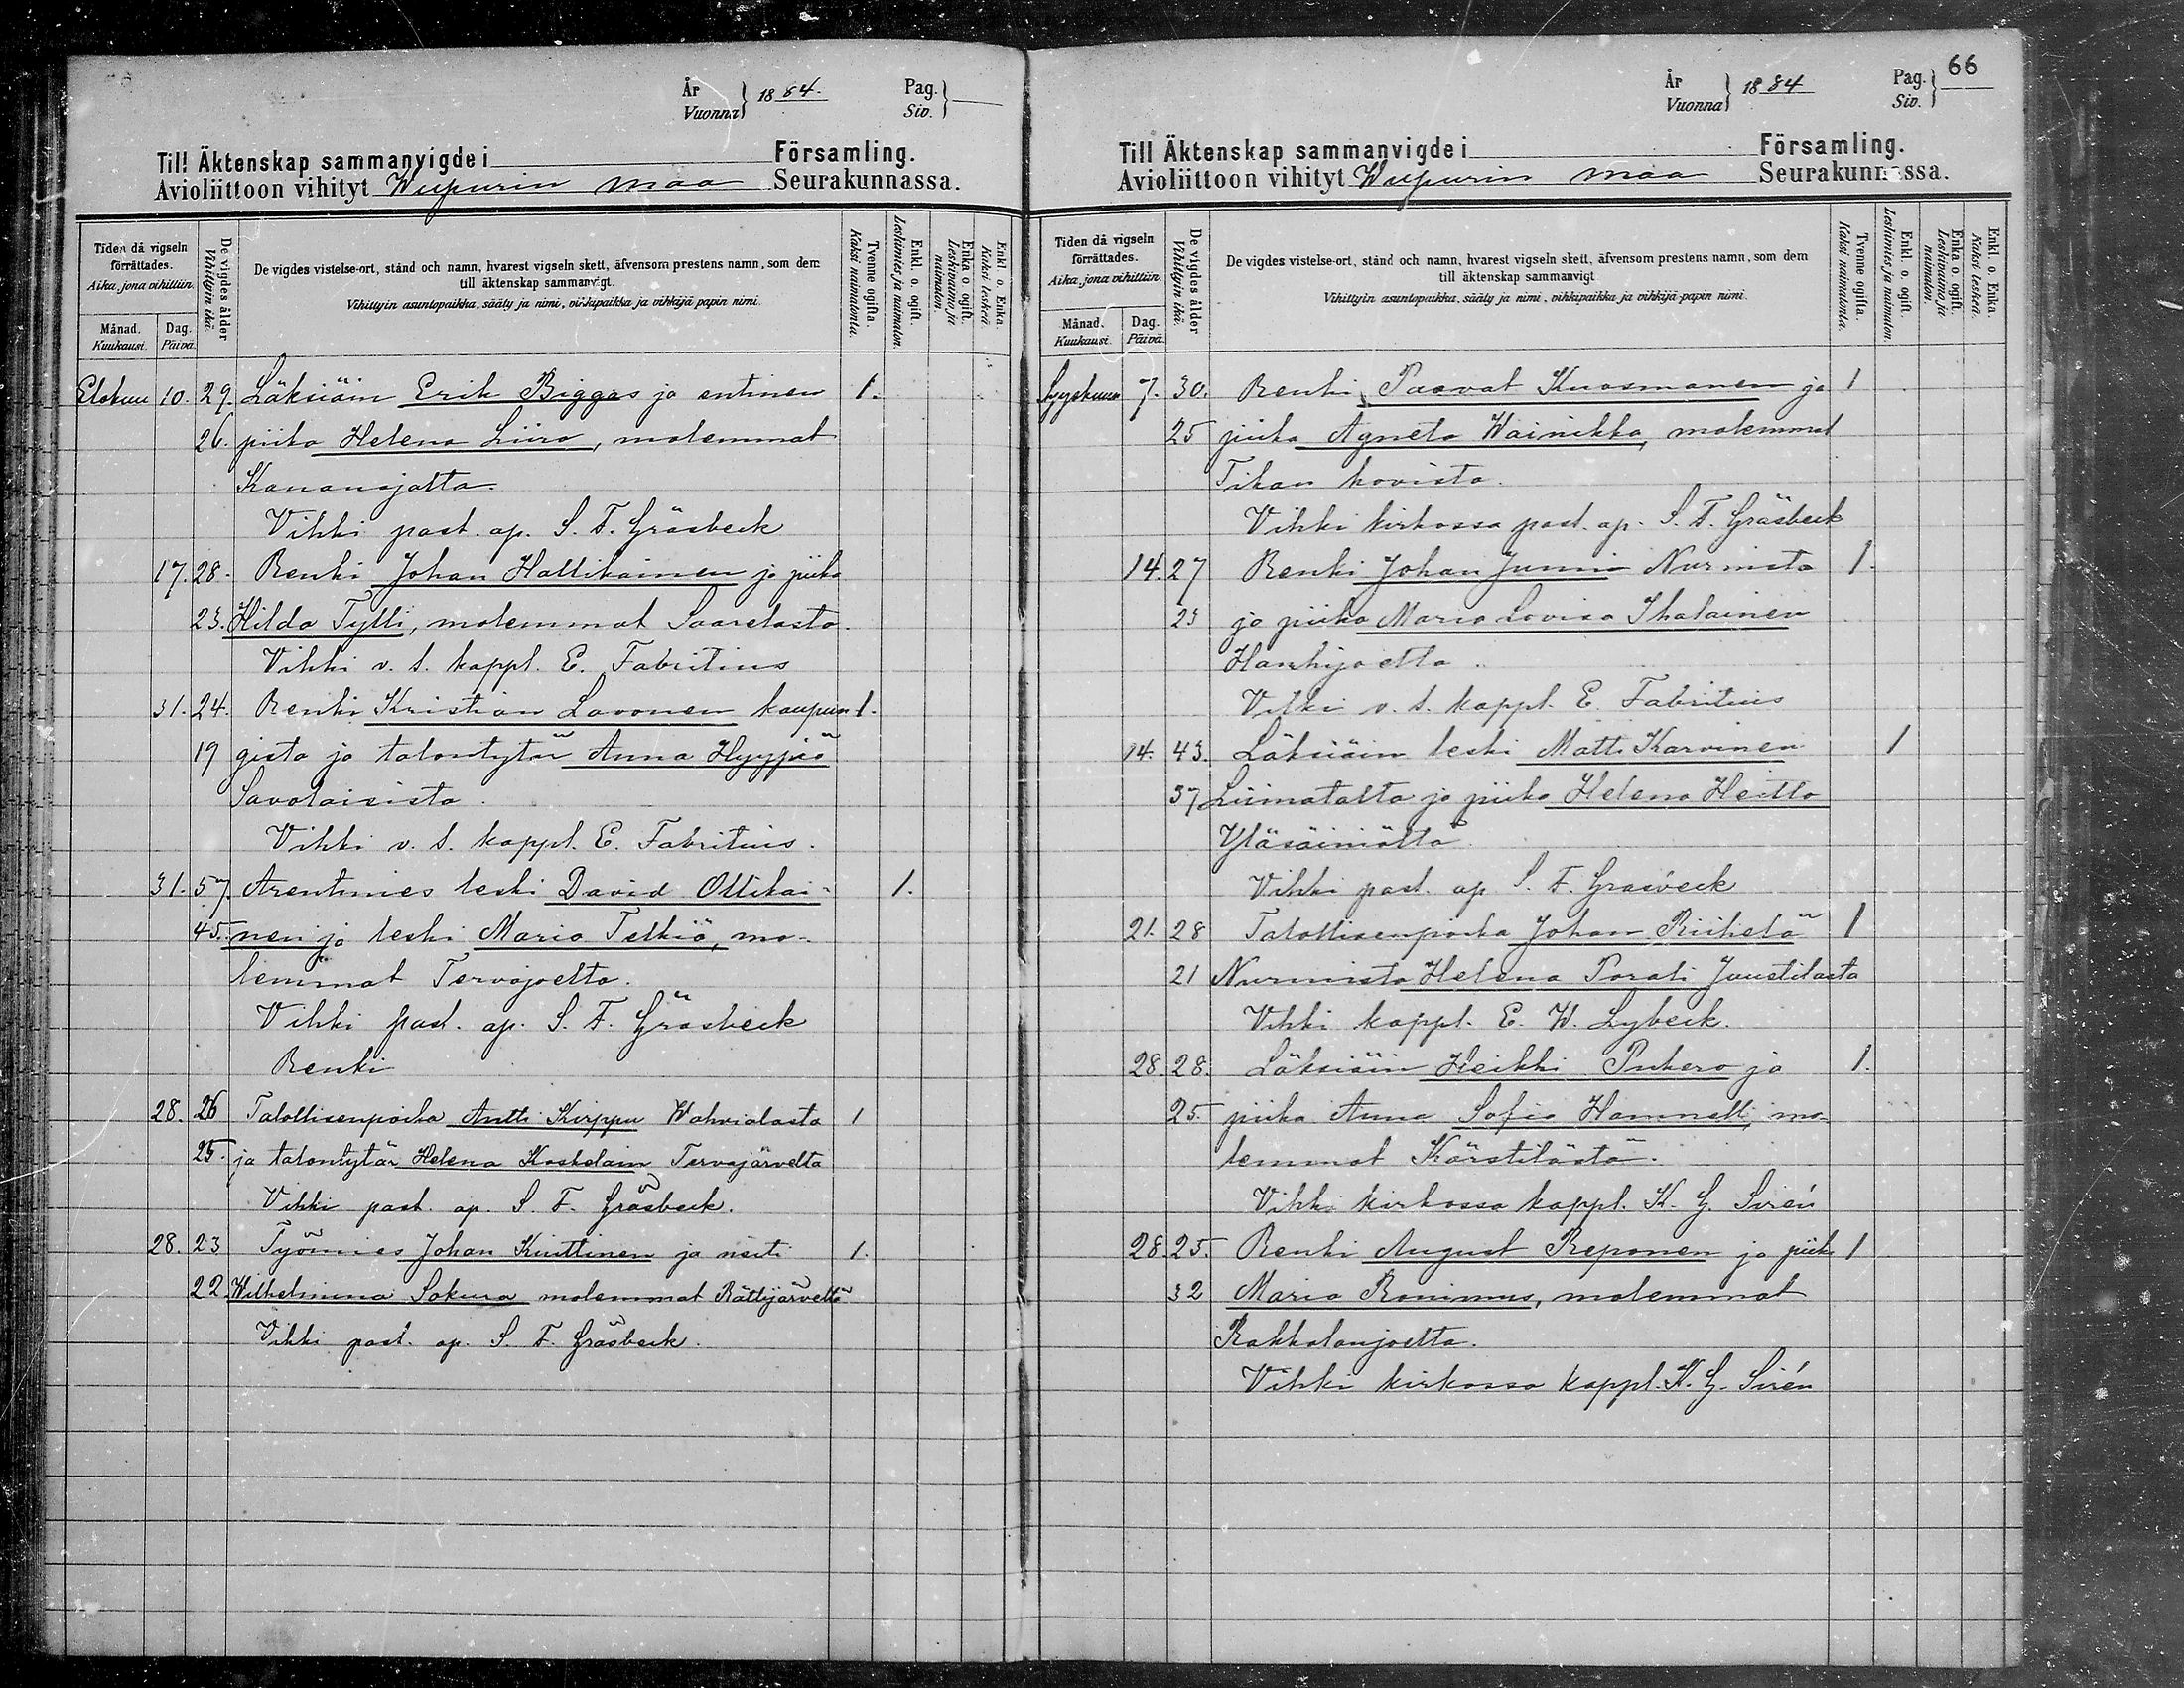 År
Vuonna } 1884. Pag.
Siv. }
Till Äktenskap sammanvigde i Församling.
Avioliittoon vihityt Wiipurin maa Seurakunnassa.
Tiden då vigseln förrättades.
Aika, jona vihittiin.
Månad.
Kuukausi.
Dag.
Päivä.
De vigdes ålder
Vihittyin ikä.
De vigdes vistelse-ort, stånd och namn, hvarest vigseln skett, äfvensom prestens namn, som dem
till äktenskap sammanvigt.
Vihittyin asuntopaikka, sääty ja nimi, vihkipaikka ja vihkijä papin nimi.
Tvenne ogifta.
Kaksi naimatonta.
Enkl. o. ogift.
Leskimies ja naimaton.
Enka o. ogift.
Leskivaimo ja naimaton.
Enkl. o. Enka.
Kaksi leskeä.
Elokuu 10. 29. Läksiäin Erik Biggas ja entinen 1.
26. piika Helena Liira, molemmat
Kananojalta.
Vihki past. ap. S. F. Gräsbeck
17. 28. Renki Johan Hallikainen ja piika
23. Hilda Tylli, molemmat Saarelasta.
Vihki v. s. kappl. E. Fabritius
31. 24. Renki Kristian Lavonen kaupun 1.
19 gista ja talontytär Anna Hyypiä
Savolaisista.
Vihki v. s. kappl. E. Fabritius.
31. 57. Arentimies leski David Ollikai- 1.
45. nen ja leski Maria Telkiö, mo-
lemmat Tervajoelta.
Vihki past. ap. S. F. Gräsbeck
Renki
28. 26 Talollisenpoika Antti Kirppu Wahvialasta 1
25. ja talontytär Helena Koskelain Tervajärvelta
Vihki past. ap. S. F. Gräsbeck.
28. 23 Työmies Johan Kuittinen ja neiti 1.
22. Wilhelmina Sokura molemmat Rättijärveltä
Vihki past. ap. S. F. Gräsbeck.
66
År
Vuonna } 1884 Pag.
Siv. }
Till Äktenskap sammanvigde i Församling.
Avioliittoon vihityt Wiipurin maa Seurakunnassa.
Tiden då vigseln förrättades.
Aika, jona vihittiin.
Månad.
Kuukausi
Dag.
Päivä.
De vigdes ålder
Vihittyin ikä.
De vigdes vistelse-ort, stånd och namn, hvarest vigseln skett, äfvensom prestens namn, som dem
till äktenskap sammanvigt
Vihittyin asuntopaikka, sääty ja nimi, vihkipaikka ja vihkijä papin nimi.
Tvenne ogifta.
Kaksi naimatonta.
Enkl. o. ogift.
Leskimies ja naimaton.
Enka o. ogift.
Leskivaimo ja naimaton.
Enkl. o. Enka.
Kaksi leskeä.
Syyskuu 7. 30. Renki Paaval Kuosmanen ja 1
25 piika Agneta Wainikka, molemmat
Tikan hovista.
Vihki kirkossa past. ap. S. F. Gräsbeck
14. 27 Renki Johan Junni Nurmista 1.
23 ja piika Maria Lovisa Ihalainen
Hanhijoelta.
Vihki v. s. kappl. E. Fabritius
14. 43. Läksiäin leski Matti Karvinen 1
37 Liimatalta ja piika Helena Heitto
Yläsäiniöltä.
Vihki past. ap S. F. Gräsbeck
21. 28 Talollisenpoika Johan Riihelä 1
21 Nurmista Helena Porali Juustilasta
Vihki kappl. E. W. Lybeck.
28. 28. Läksiäin Heikki Puhero ja 1.
25. piika Anna Sofia Hammell, mo-
lemmat Kärstilästä.
Vihki kirkossa kappl. K. G. Sirén
28. 25. Renki August Reponen ja piika 1
32 Maria Ronimus, molemmat
Rakkolanjoelta.
Vihki kirkossa kappl. K. G. Sirén